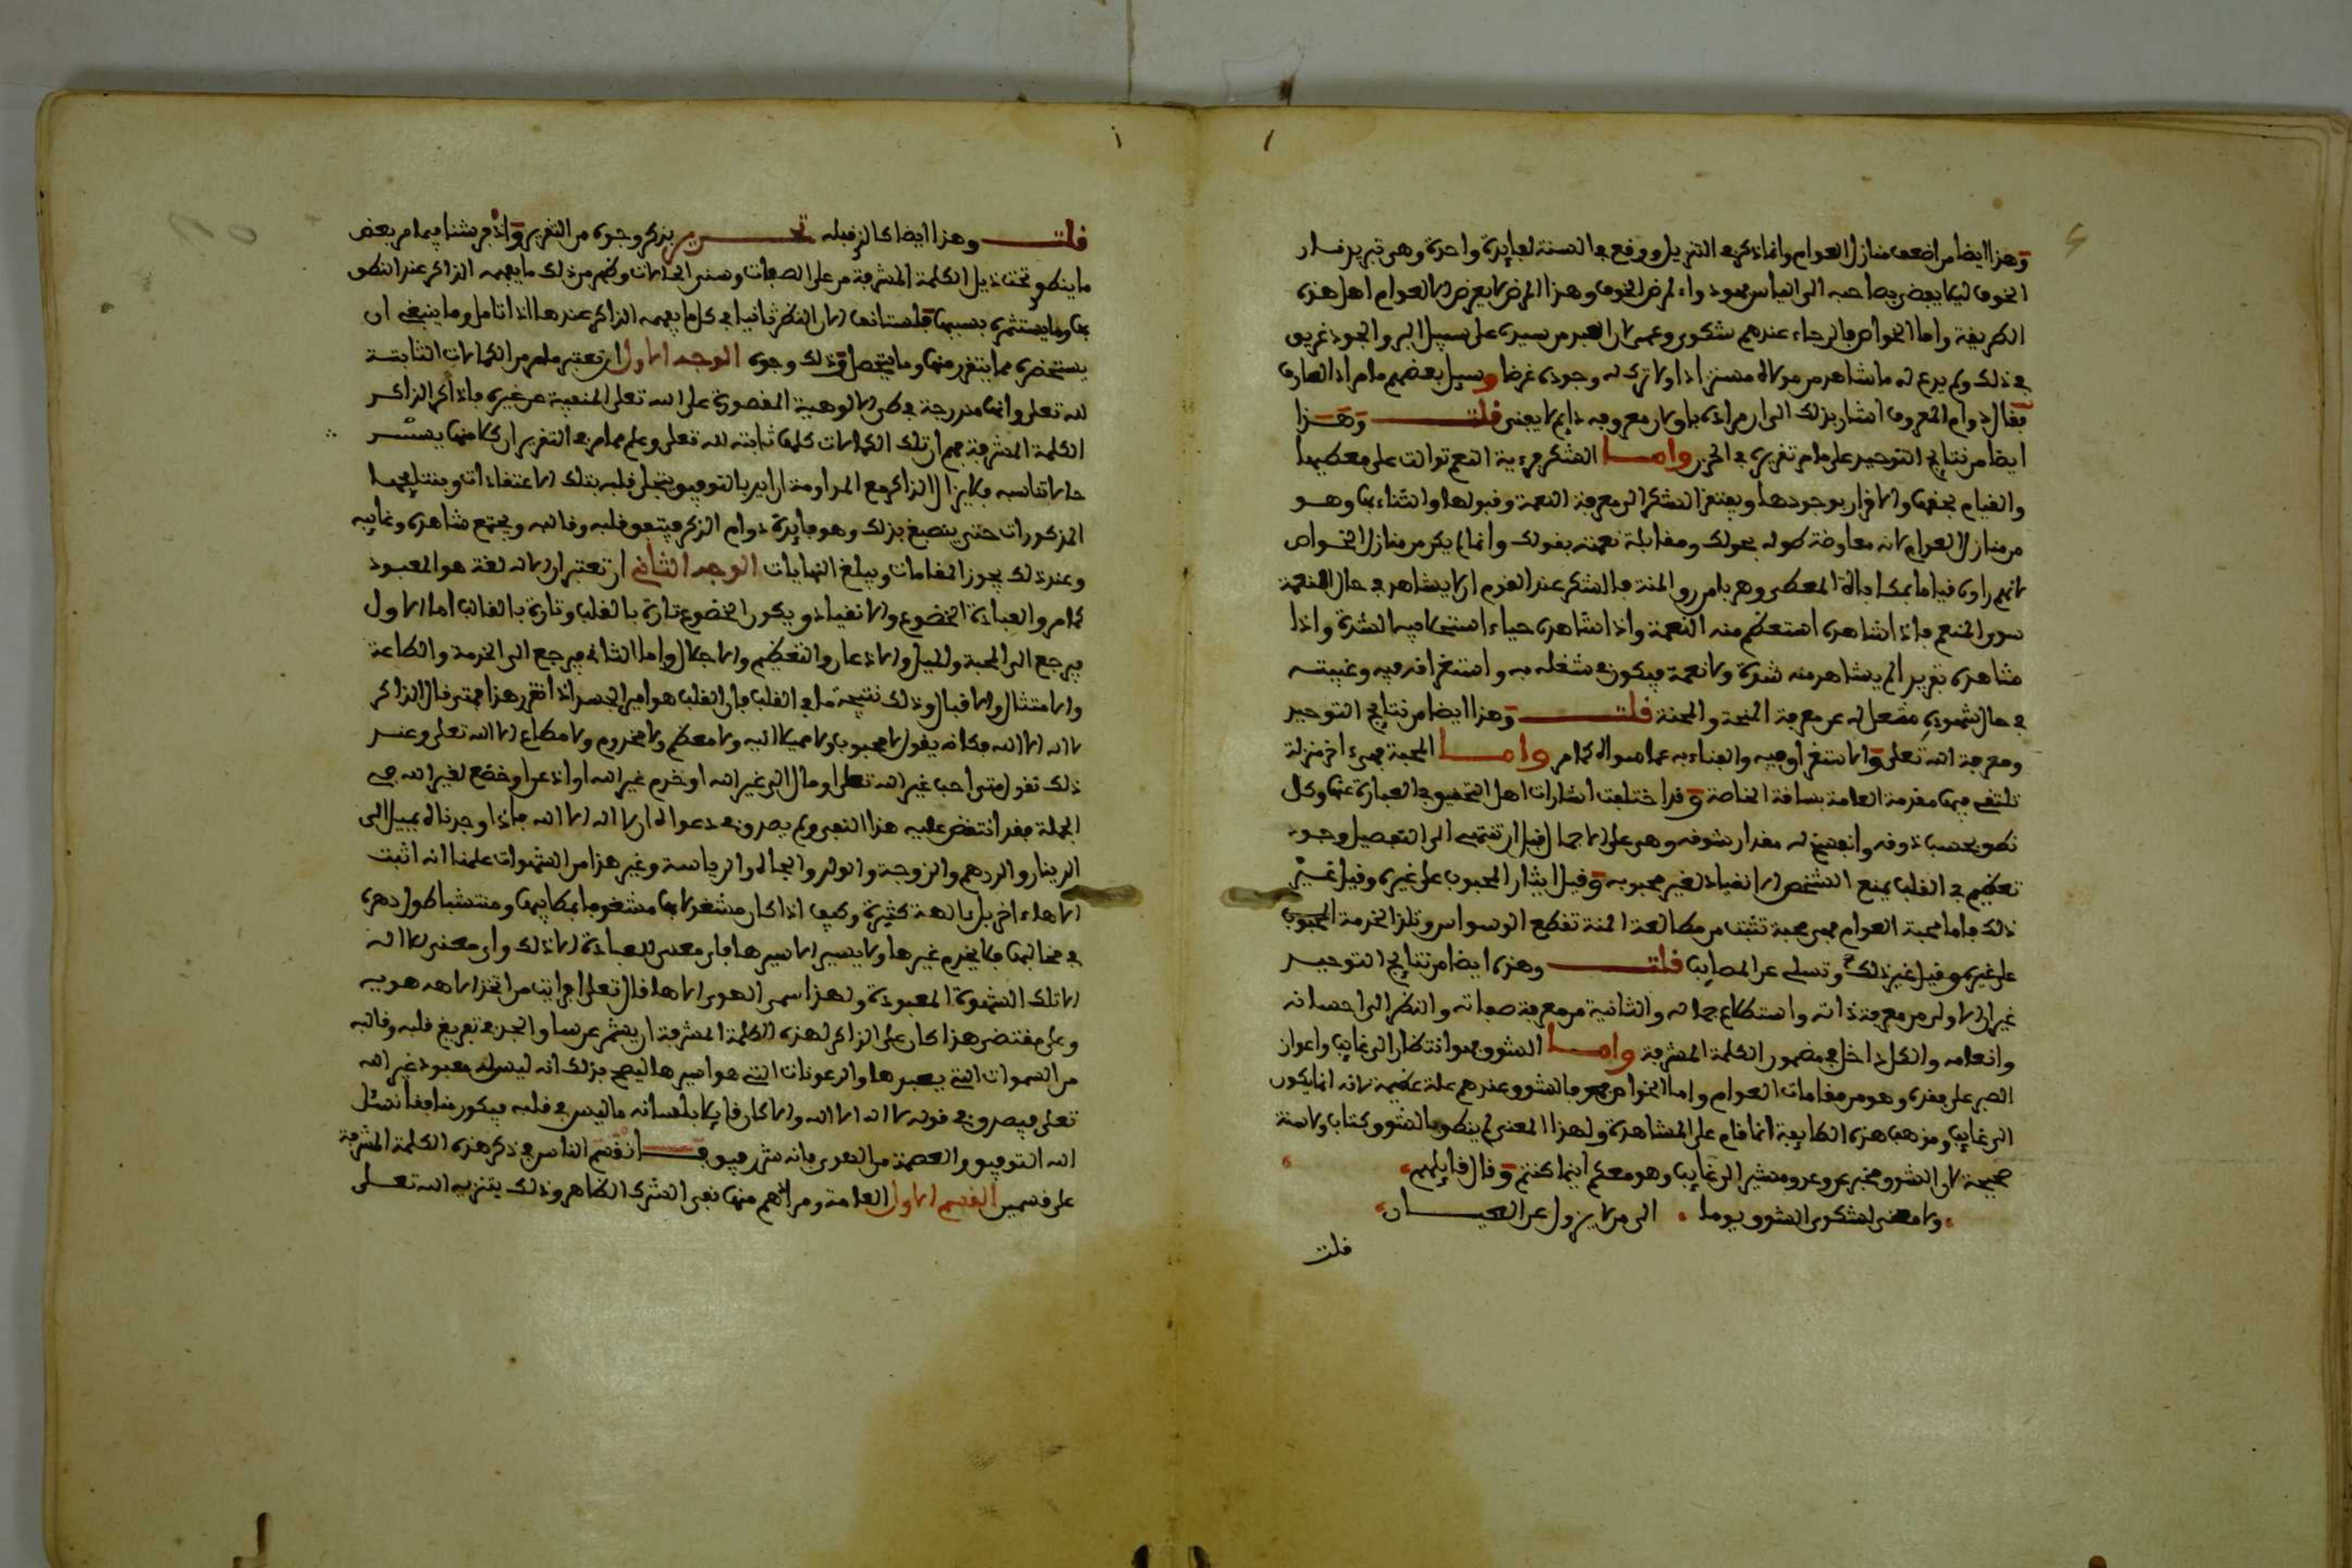 وهذا ايضا من اضعف منازل العوام وانما ذكر في التنزيل ووقع في السنة لفايدة واحدة وهي تبريد نار
الخوف ليلا يفضي بصاحبه الى الياس فهو دواء لمرض الخوف وهذا المرض لا يعرض الا لعوام اهل هذه
الطريقة واما الخواص فالرجاء عندهم شكوى وعمى لان العبد من سيده على سبيل البر والجود غريق
في ذلك ولم يدع له ما شاهد من مولاه مستزادا ولا ترك له وجوده غرضا وسيل بعضهم ما مراد العارف
فقال دوام المعروف اشار بذلك الى ان مراده باق لان معروفه دايم لا يفنى قلت وهذا
ايضا من نتايج التوحيد على ما مر تقريره في الحزن واما الشكر فرءية النعم توالت على معطيها
والقيام بحقها والاقرار بوجودها ويفتقر الشكر الى معرفة النعمة وقبولها والثناء بها وهو
من منازل العوام لانه معاوضة طوله بحولك ومقابلة نعمته بقولك وانما لم يكن من منازل الخواص
لانهم راوه قياما بمكافاة المعطي وهربا من رق المنة فالشكر عند القوم ان لا يشاهد في حال النعمة
سوى المنعم فاذا شاهده استعظم منه النعمة واذا شاهده حياء استحلا فيه الشدة واذا
شاهده تفريدا لم يشاهد منه شدة ولا نعمة فيكون في شغله به واستغراقه فيه وغيبته
في حال شهوده مشغل له عن معرفة المنحة والمحنة قلت وهذا ايضا من نتايج التوحيد
ومعرفة الله تعلى والاستغراق فيه والفناء به عما سواه كما مر واما المحبة فهي ءاخر منزلة
تلتقي فيها مقدمة العامة بساقة الخاصة وقد اختلفت اشارات اهل التحقيق في العبارة عنها وكل
نطق بحسب ذوقه وانفسح له مقدار شوقه وهي على الاجمال قبل ان تنتهي الى التفصيل وجود
تعظيم في القلب يمنع الشخص الانقياد لغير محبوبه وقيل ايثار المحبوب على غيره وقيل غير
ذلك فاما محبة العوام فهي محبة تثبت من مطالعة المنة تقطع الوسواس وتلذ الخدمة المحبوب
على غيره وقيل غير ذلك وتسلي عن المصايب قلت وهذه ايضا من نتايج التوحيد
غير ان الاولى من معرفة ذاته واستطلاع جماله والثانية من معرفة صفاته والنظر الى احسانه
وانعامه والكل داخل في مضمون الكلمة المشرفة واما الشوق فهو انتظار الى غايب واعواز
الصبر على فقده وهو من مقامات العوام واما الخواص فهو فالشوق عندهم علة عظيمة لانه انما يكون
الى غايب ومذهب هذه الطايفة انما قام على المشاهدة ولهذا المعنى لم ينطق بالشوق كتاب ولا سنة
صحيحة لان الشوق مخبر عن وعد ومشير الى غايب وهو معكم اينما كنتم وقال قايلهم
ولا معنى لشكوى الشوق يوما الى من لا يزول عن العيان
قلت
قلت وهذا ايضا كالذي قبله تحرير بذكر وجوه من التقرير واذ قد بينا فيما مر بعض
ما ينطوي تحت ذيل الكلمة المشرفة من على الصفات وسني الحالات وفهم من ذلك ما يفهمه الذاكر عند النطق
بها وما يستثمره بسببها فلنستانف الان النظر ثانيا في كل ما يفهمه الذاكر عندها اذا تامل وما ينبغي ان
يستحضره مما يتقرر منها وما يتحصل وذلك وجوه الوجه الاول ان تعتبر ما مر من الكمالات الثابتة
لله تعلى وانها مندرجة في طي الالوهية المقصورة على الله تعلى المنفية عن غيره فاذا ذكر الذاكر
الكلمة المشرفة فهم ان تلك الكمالات كلها ثابتة لله تعلى وعلم مما مر في التقرير ان كلا منها يستثمر
حالا تناسبه فلا يزال الذاكر مع المداومة ان ايد بالتوفيق يتجلى قلبه بتلك الاعتقادات وينتج فيها
المذكورات حتى ينصبغ بذلك وهو فايدة دوام الذكر فيتفق قلبه وقالبه ويجتمع شاهده وغايبه
وعند ذلك يجوز المقامات ويبلغ النهايات الوجه الثاني ان تعتبر ان الاله لغة هو المعبود
كما مر والعبادة الخضوع والانقياد ويكون الخضوع تارة بالقلب وتارة بالقالب اما الاول
فيرجع الى المحبة والميل والاذعان والتعظيم والاجلال واما الثاني فيرجع الى الخدمة والطاعة
والامتثال والاقبال وذلك نتيجة ما في القلب فان القلب هو امير الجسد اذا تقرر هذا فمتى قال الذاكر
لا اله الا الله فكانه يقول لا محبوب ولا مميلا اليه ولا معظم ولا مخدوم ولا مطاع الا الله تعلى وعند
ذلك تقول متى احب غير الله تعلى او مال الى غير الله او خدم غير الله او اذعن او خضع لغير الله في
الجملة فقد انتقض عليه هذا النفي ولم يصدق في دعواه ان لا اله الا الله فاذا وجدناه يميل الى
الدينار والدرهم والزوجة والولد والجاه والرياسة وغير هذا من الشهوات علمنا انه اثبت
الاها ءاخر بل ءالهة كثيرة وكيف اذا كان مشغولا بها مشغوفا بمكايدها ومتشبثا طول دهره
في مخالبها فلا يخدم غيرها ولا يسير الا سيرها فاي معنى للعبادة الا ذلك واي معنى للاله
الا تلك الشهوة المعبودة ولهذا سمى الهوى الاها قال تعلى افرايت من اتخذ الاهه هويه
وعلى مقتضى هذا كان على الذاكر لهذه الكلمة المشرفة ان يشمر عن ساق الجد في تفريغ قلبه وقالبه
من الشهوات التي يعبدها والرعونات التي هو اسيرها ليصح بذلك انه ليس له معبود غير الله
تعلى فيصدق في قوله لا اله الا الله والا كان قايلا بلسانه ما ليس في قلبه فيكون منافقا نسئل
الله التوفيق والعصمة من الهوى فانه شر رفيق انقسم الناس في ذكر هذه الكلمة المشرفة
على قسمين القسم الاول العامة ومرادهم منها نفي الشرك الظاهر وذلك بتنزيه الله تعلى